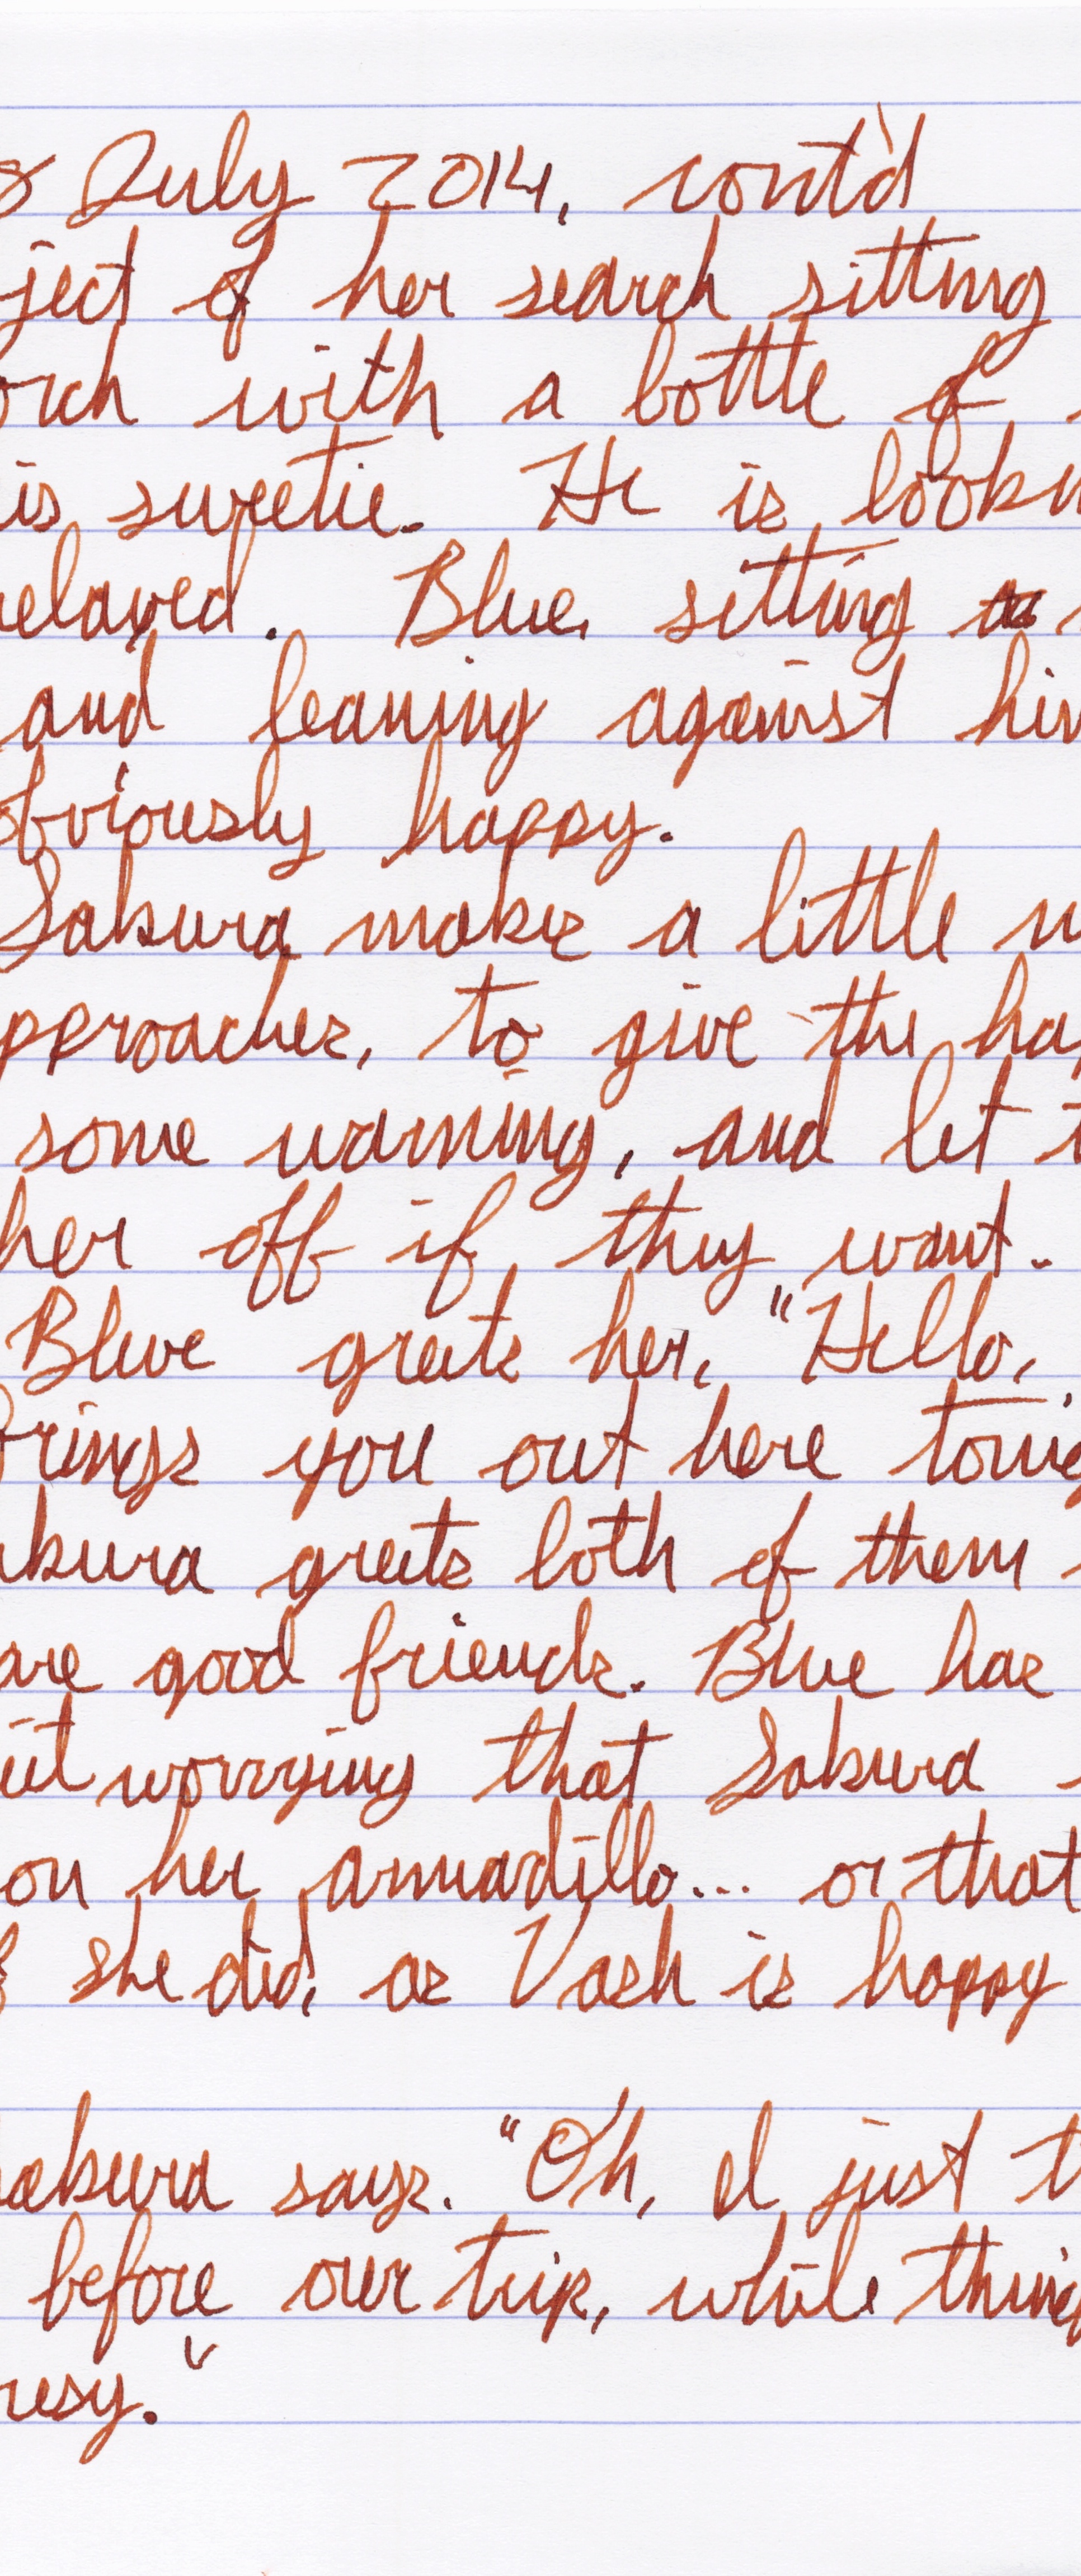 8 July 2014, cont'd
ject of her search sitting
orch with a bottle of
is sweetie. He is looki
relaxed. Blue, sitting
and leaning against him
obviously happy.
Sakura makes a little n
pproaches, to give the hap
some warning, and let t
her off if they want.
Blue greets her, "Hello,
brings you out here tonig
akura greets both of them
are good friends. Blue has
uit worrying that Sakura
on her armadillo... or that
f she did, as Vash is happy
akura says. "Oh, I just t
before our trip, while thing
resy."